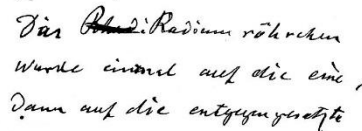 Das Radiumröhrchen
wurde einmal auf die eine,
dann auf die entgegengesetzte